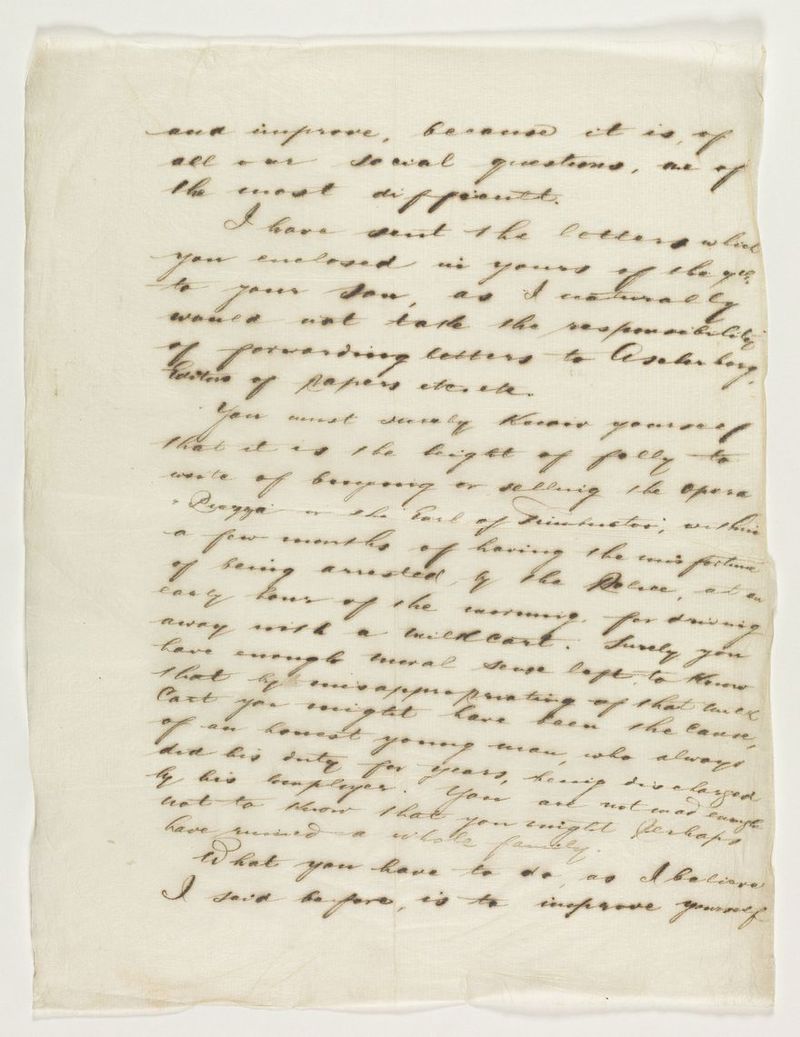 and improve, because it is, of
all our social questions, one of
the most difficult.
I have sent the letters which
you enclosed in yours of the 9th
to your son, as I naturally
would not take the responsibility
of forwarding letters to
Editors of papers etc. etc.
You must surely know yourself
that it is the hight of folly to
write of buying or selling the opera
or the Earl of within
a few months of having the misfortune
of being arrested, by the Police, at an
early hour of the morning, for driving
away with a milkcart. Surely you
have enough moral sense left, to know
that by misappropriating of that milk
cart you might have been the cause,
of an honest young man, who always
did his duty for years, being discharged
by his employer. You are not mad enough
not to know that you might perhaps
have ruined a whole family.
What you have to do, as I believe
I said before, is to improve yourself